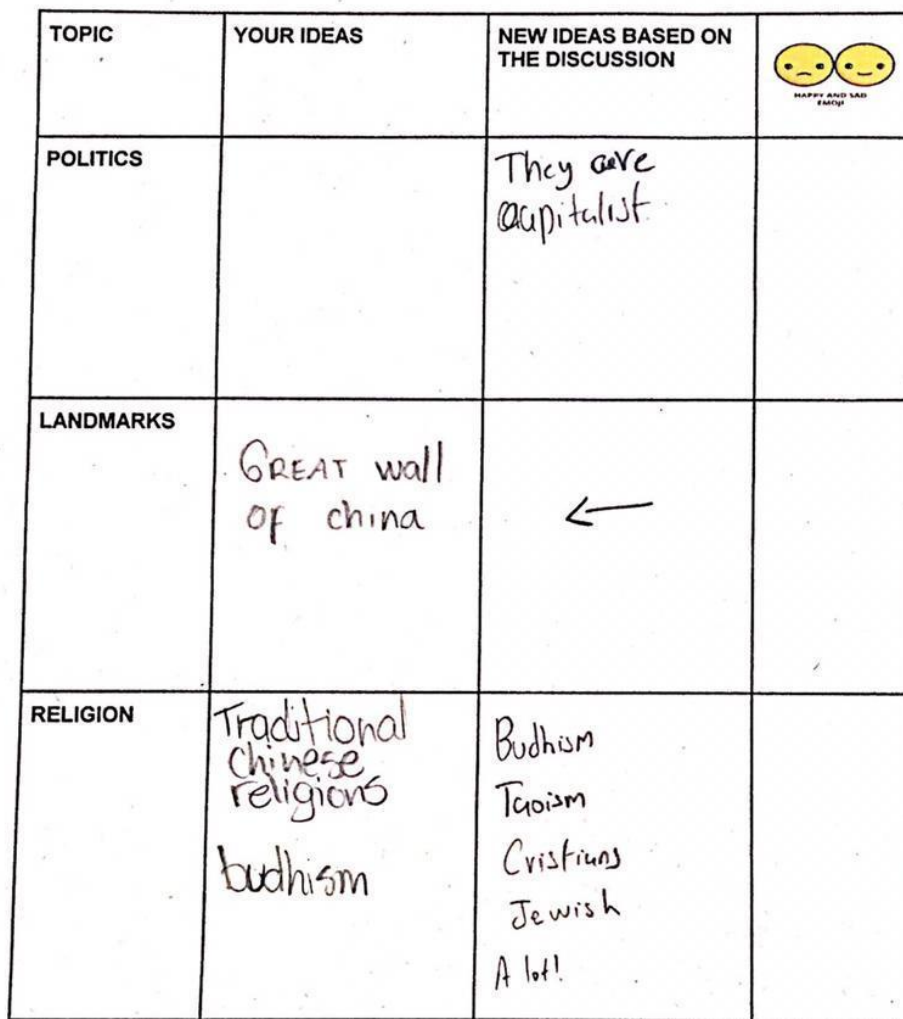 TOPIC
YOUR IDEAS
NEW IDEAS BASED ON
THE DISCUSSION
HAPPY AND SAD
EMOJI
POLITICS
They are
capitalist
LANDMARKS
GREAT wall
OF china
←
RELIGION
Traditional
chinese
religions
budhism
Budhism
Taoism
Cristians
Jewish
A lot!